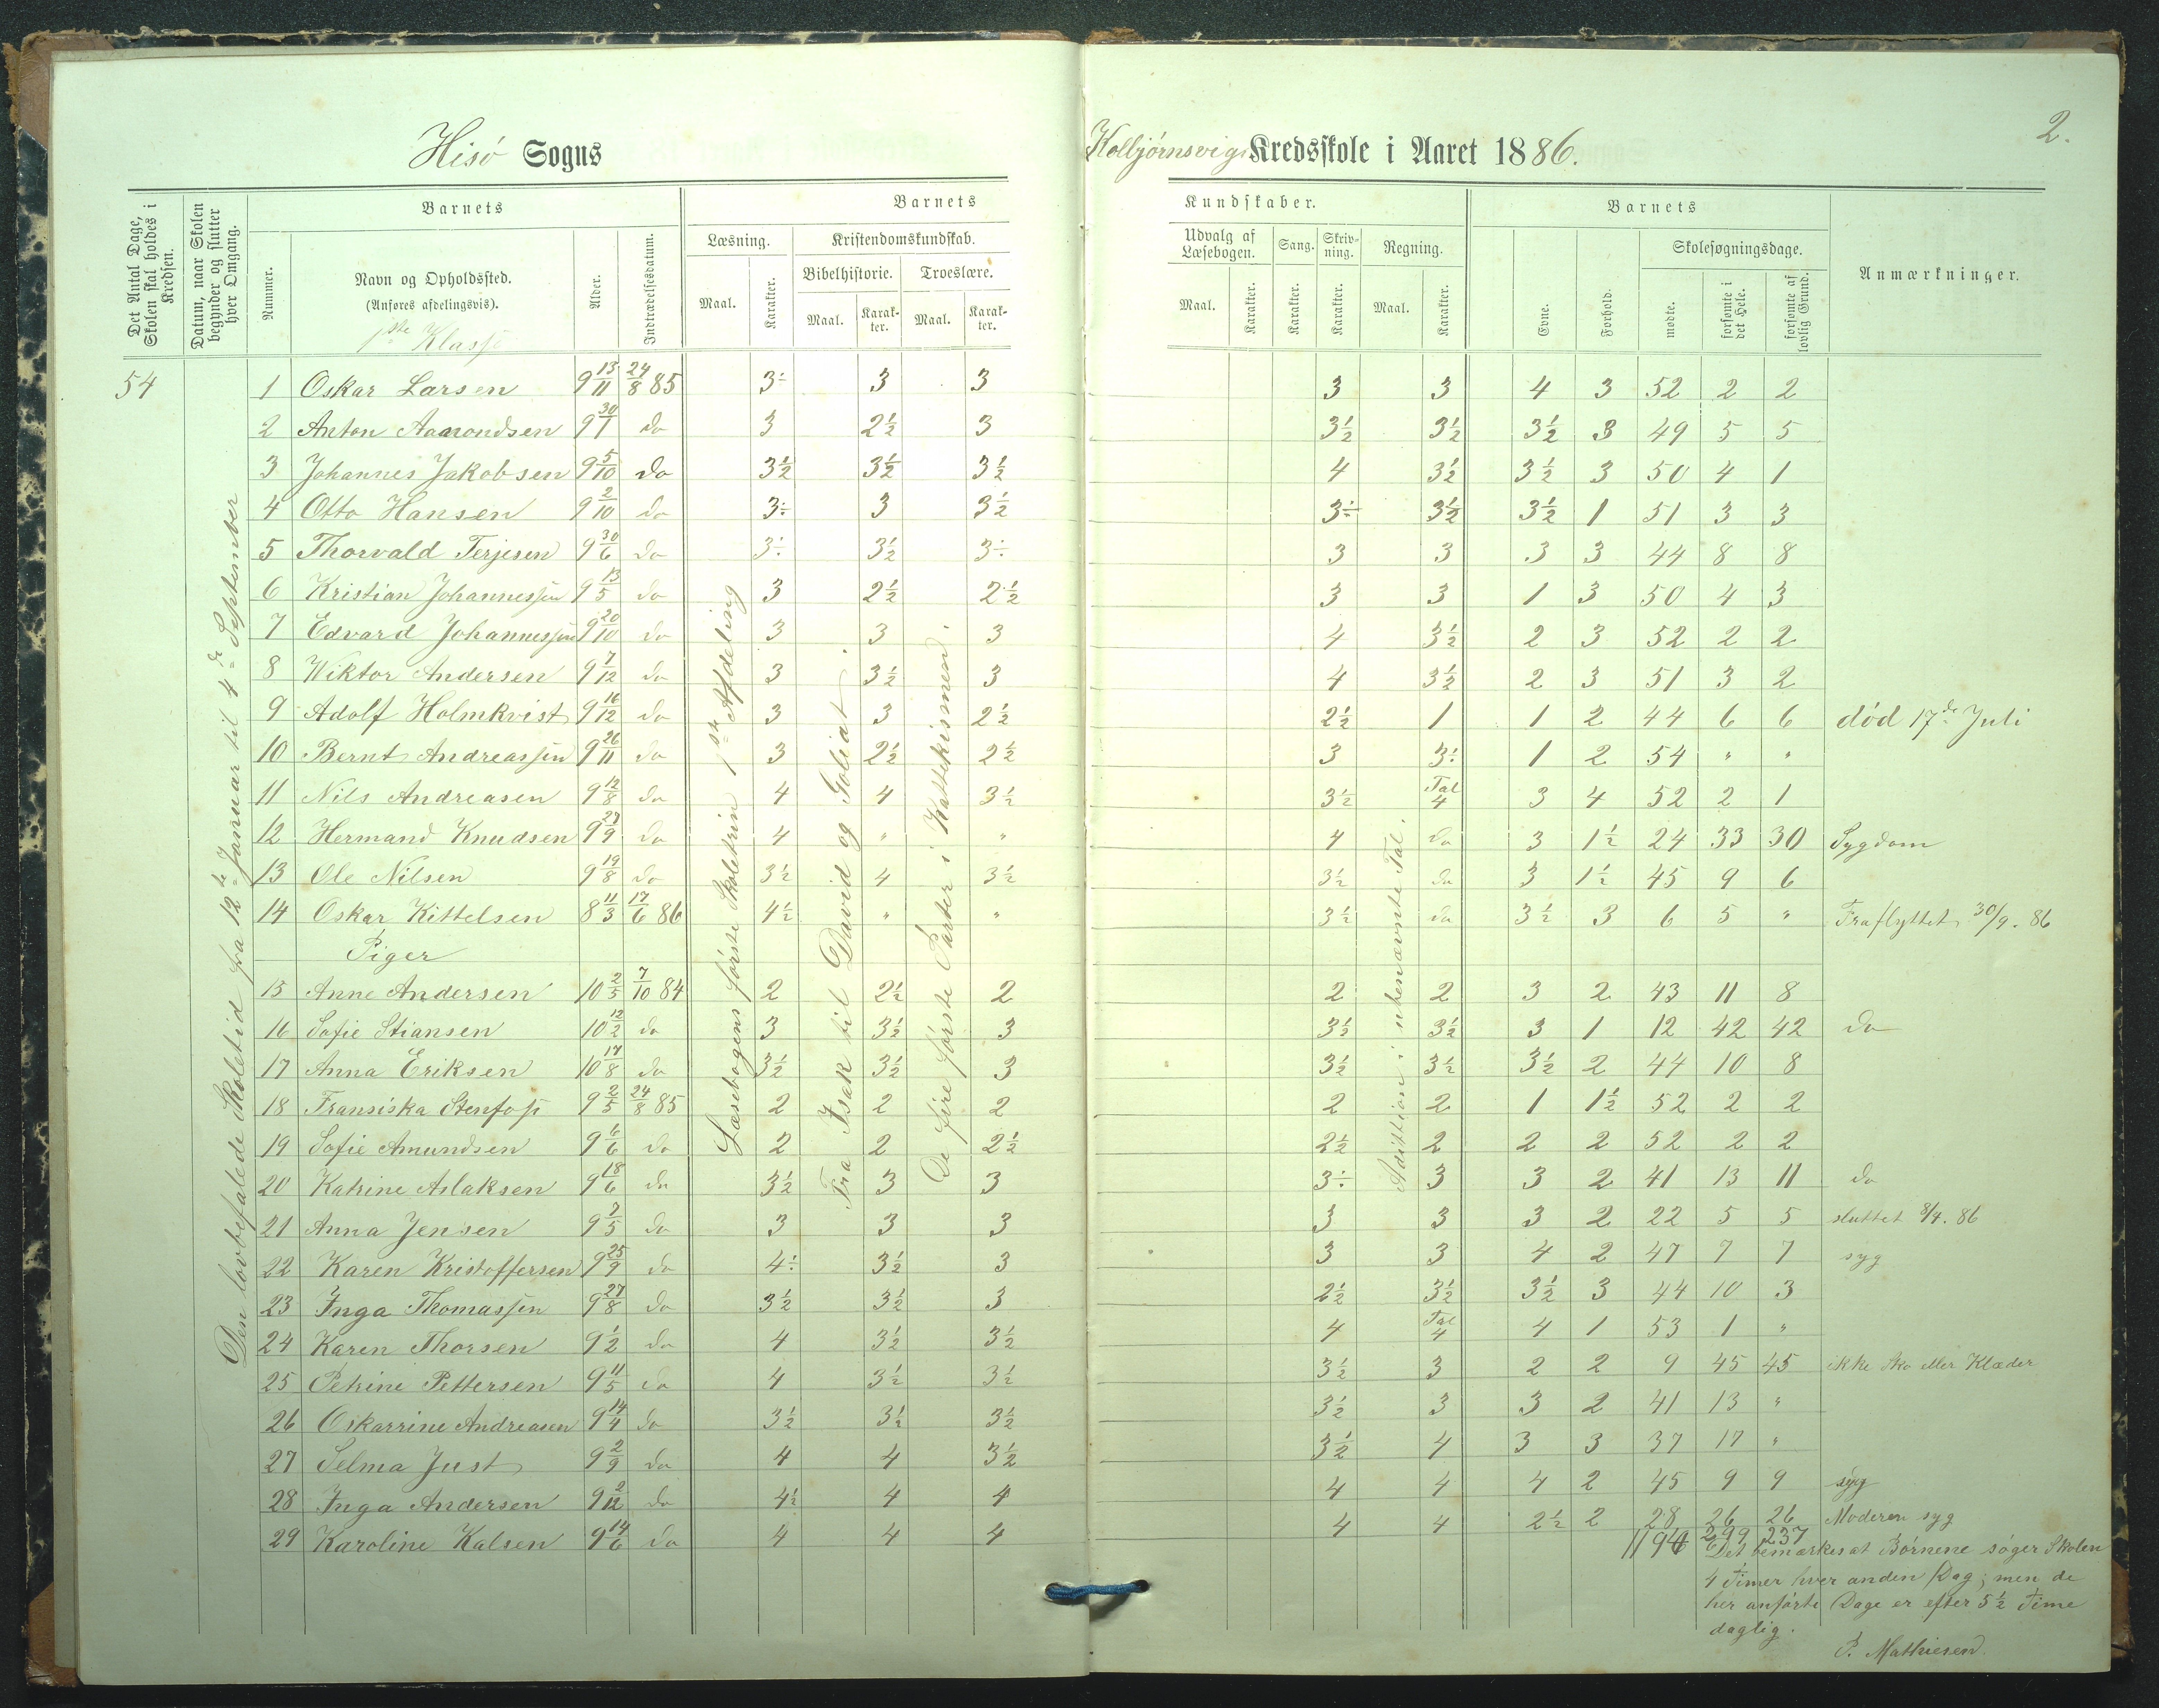 Hisö Sogns
Kolbjørnsvigs Kredsskole i Aaret 1886.
2.
Det Antal Dage, Skolen skal holdes i Kredsen.
Datum, naar Skolen begynder og slutter hver Omgang.
Barnets
Nummer.
Navn og Opholdssted.
(Anføres afdelingsvis).
1ste Klasse
Alder.
Indtrædelsesdatum.
Barnets
Læsning.
Maal.
Karakter.
Kristendomskundskab.
Bibelhistorie.
Maal.
Karakter.
Troeslære.
Maal.
Karakter.
Kundskaber.
Udvalg af Læsebogen.
Maal.
Karakter.
Sang.
Karakter.
Skrivning.
Karakter.
Regning.
Maal.
Karakter.
Barnets
Evne.
Forhold.
Skolesøgningsdage.
mødte.
forsømte i det Hele.
forsømte af lovlig Grund.
Anmærkninger.
54
Den lovbefalede Skoletid fra 12te Januar til 4de September
Læsebogens første Skoletrin 1ste Afdeling
Fra Isak til David og Goliat.
De fire første Parter i Kattekismen.
Adittion i ubenævnte Tal.
1 Oskar Larsen 9 13/11 24/8 85 3÷ 3 3 3 3 4 3 52 2 2
2 Anton Aamondsen 9 30/1 do 3 2½ 3 3½ 3½ 3½ 3 49 5 5
3 Johannes Jakobsen 9 5/10 do 3½ 3½ 3½ 4 3½ 3½ 3 50 4 1
4 Otto Hansen 9 2/10 do 3÷ 3 3½ 3÷ 3½ 3½ 1 51 3 3
5 Thorvald Terjesen 9 30/6 do 3÷ 3½ 3÷ 3 3 3 3 44 8 8
6 Kristian Johannessen 9 13/5 do 3 2½ 2½ 3 3 1 3 50 4 3
7 Edvard Johannessen 9 20/10 do 3 3 3 4 3½ 2 3 52 2 2
8 Wiktor Andersen 9 7/12 do 3 3½ 3 4 3½ 2 3 51 3 2
9 Adolf Holmkvist 9 16/12 do 3 3 2½ 2½ 1 1 2 44 6 6 död 17de Juli
10 Bernt Andreassen 9 26/11 do 3 2½ 2½ 3 3÷ 1 2 54 " "
11 Nils Andreasen 9 12/8 do 4 4 3½ 3½ Tal 4 3 4 52 2 1
12 Hermand Knudsen 9 27/9 do 4 " " 4 do 3 1½ 24 33 30 Sygdom
13 Ole Nilsen 9 19/8 do 3½ 4 3½ 3½ do 3 1½ 45 9 6
14 Oskar Kittelsen 8 11/3 17/6 86 4½ " " 3½ do 3½ 3 6 5 " Fraflyttet 30/9. 86
Piger
15 Anne Andersen 10 2/5 7/10 84 2 2½ 2 2 2 3 2 43 11 8
16 Sofie Stiansen 10 12/2 do 3 3½ 3 3½ 3½ 3 1 12 42 42 do
17 Anna Eriksen 10 17/8 do 3½ 3½ 3 3½ 3½ 3½ 2 44 10 8
18 Fransiska Stenfoss 9 2/5 24/8 85 2 2 2 2 2 1 1½ 52 2 2
19 Sofie Amundsen 9 6/6 do 2 2 2½ 2½ 2 2 2 52 2 2
20 Katrine Aslaksen 9 18/6 do 3½ 3 3 3÷ 3 3 2 41 13 11 do
21 Anna Jensen 9 7/5 do 3 3 3 3 3 3 2 22 5 5 sluttet 8/4. 86
22 Karen Kristoffersen 9 25/9 do 4÷ 3½ 3 3 3 4 2 47 7 7 syg
23 Inga Thomassen 9 27/8 do 3½ 3½ 3 2½ 3½ 3½ 3 44 10 3
24 Karen Thorsen 9 1/2 do 4 3½ 3½ 4 Tal 4 4 1 53 1 "
25 Petrine Pettersen 9 11/5 do 4 3½ 3½ 3½ 3 2 2 9 45 45 ikke Sko eller Klæder
26 Oskarrine Andreasen 9 14/4 do 3½ 3½ 3½ 3½ 3 3 2 41 13 "
27 Selma Just 9 2/9 do 4 4 3½ 3½ 4 3 3 37 17 "
28 Inga Andersen 9 2/12 do 4½ 4 4 4 4 4 2 45 9 9 syg
29 Karoline Kalsen 9 14/6 do 4 4 4 4 4 2½ 2 28 26 26 Moderen syg
1194 299 237
Det bemærkes at Börnene söger Skolen
4 Timer hver anden Dag; men de
her anförte Dage er efter 5½ Time
daglig.
P. Mathiesen.